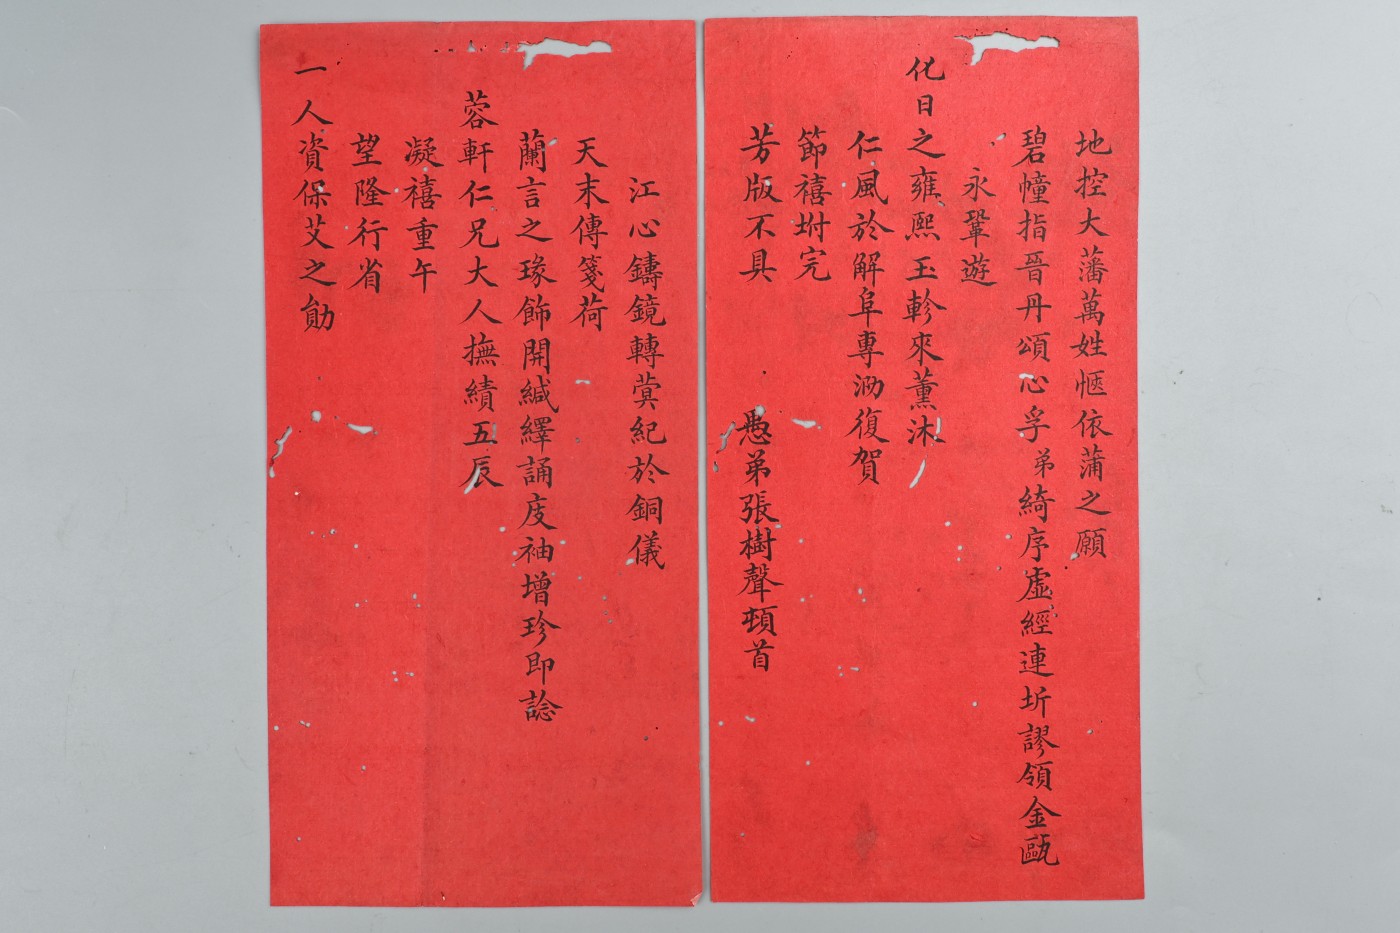 江心鑄鏡轉蓂紀於銅儀
天末傳箋荷
蘭言之瑑飾開緘繹誦庋袖增珍即諗
蓉軒仁兄大人撫績五辰
凝禧重午
望隆行省
一人資保艾之勛
地控大藩萬姓愜依蒲之願
碧幢指晉丹頌心孚弟綺序虛經連圻謬領金甌
永鞏遊
化日之雍熙玉軫來薰沐
仁風於解阜專泐復賀
節禧坿完
芳版不具 愚弟張樹聲頓首